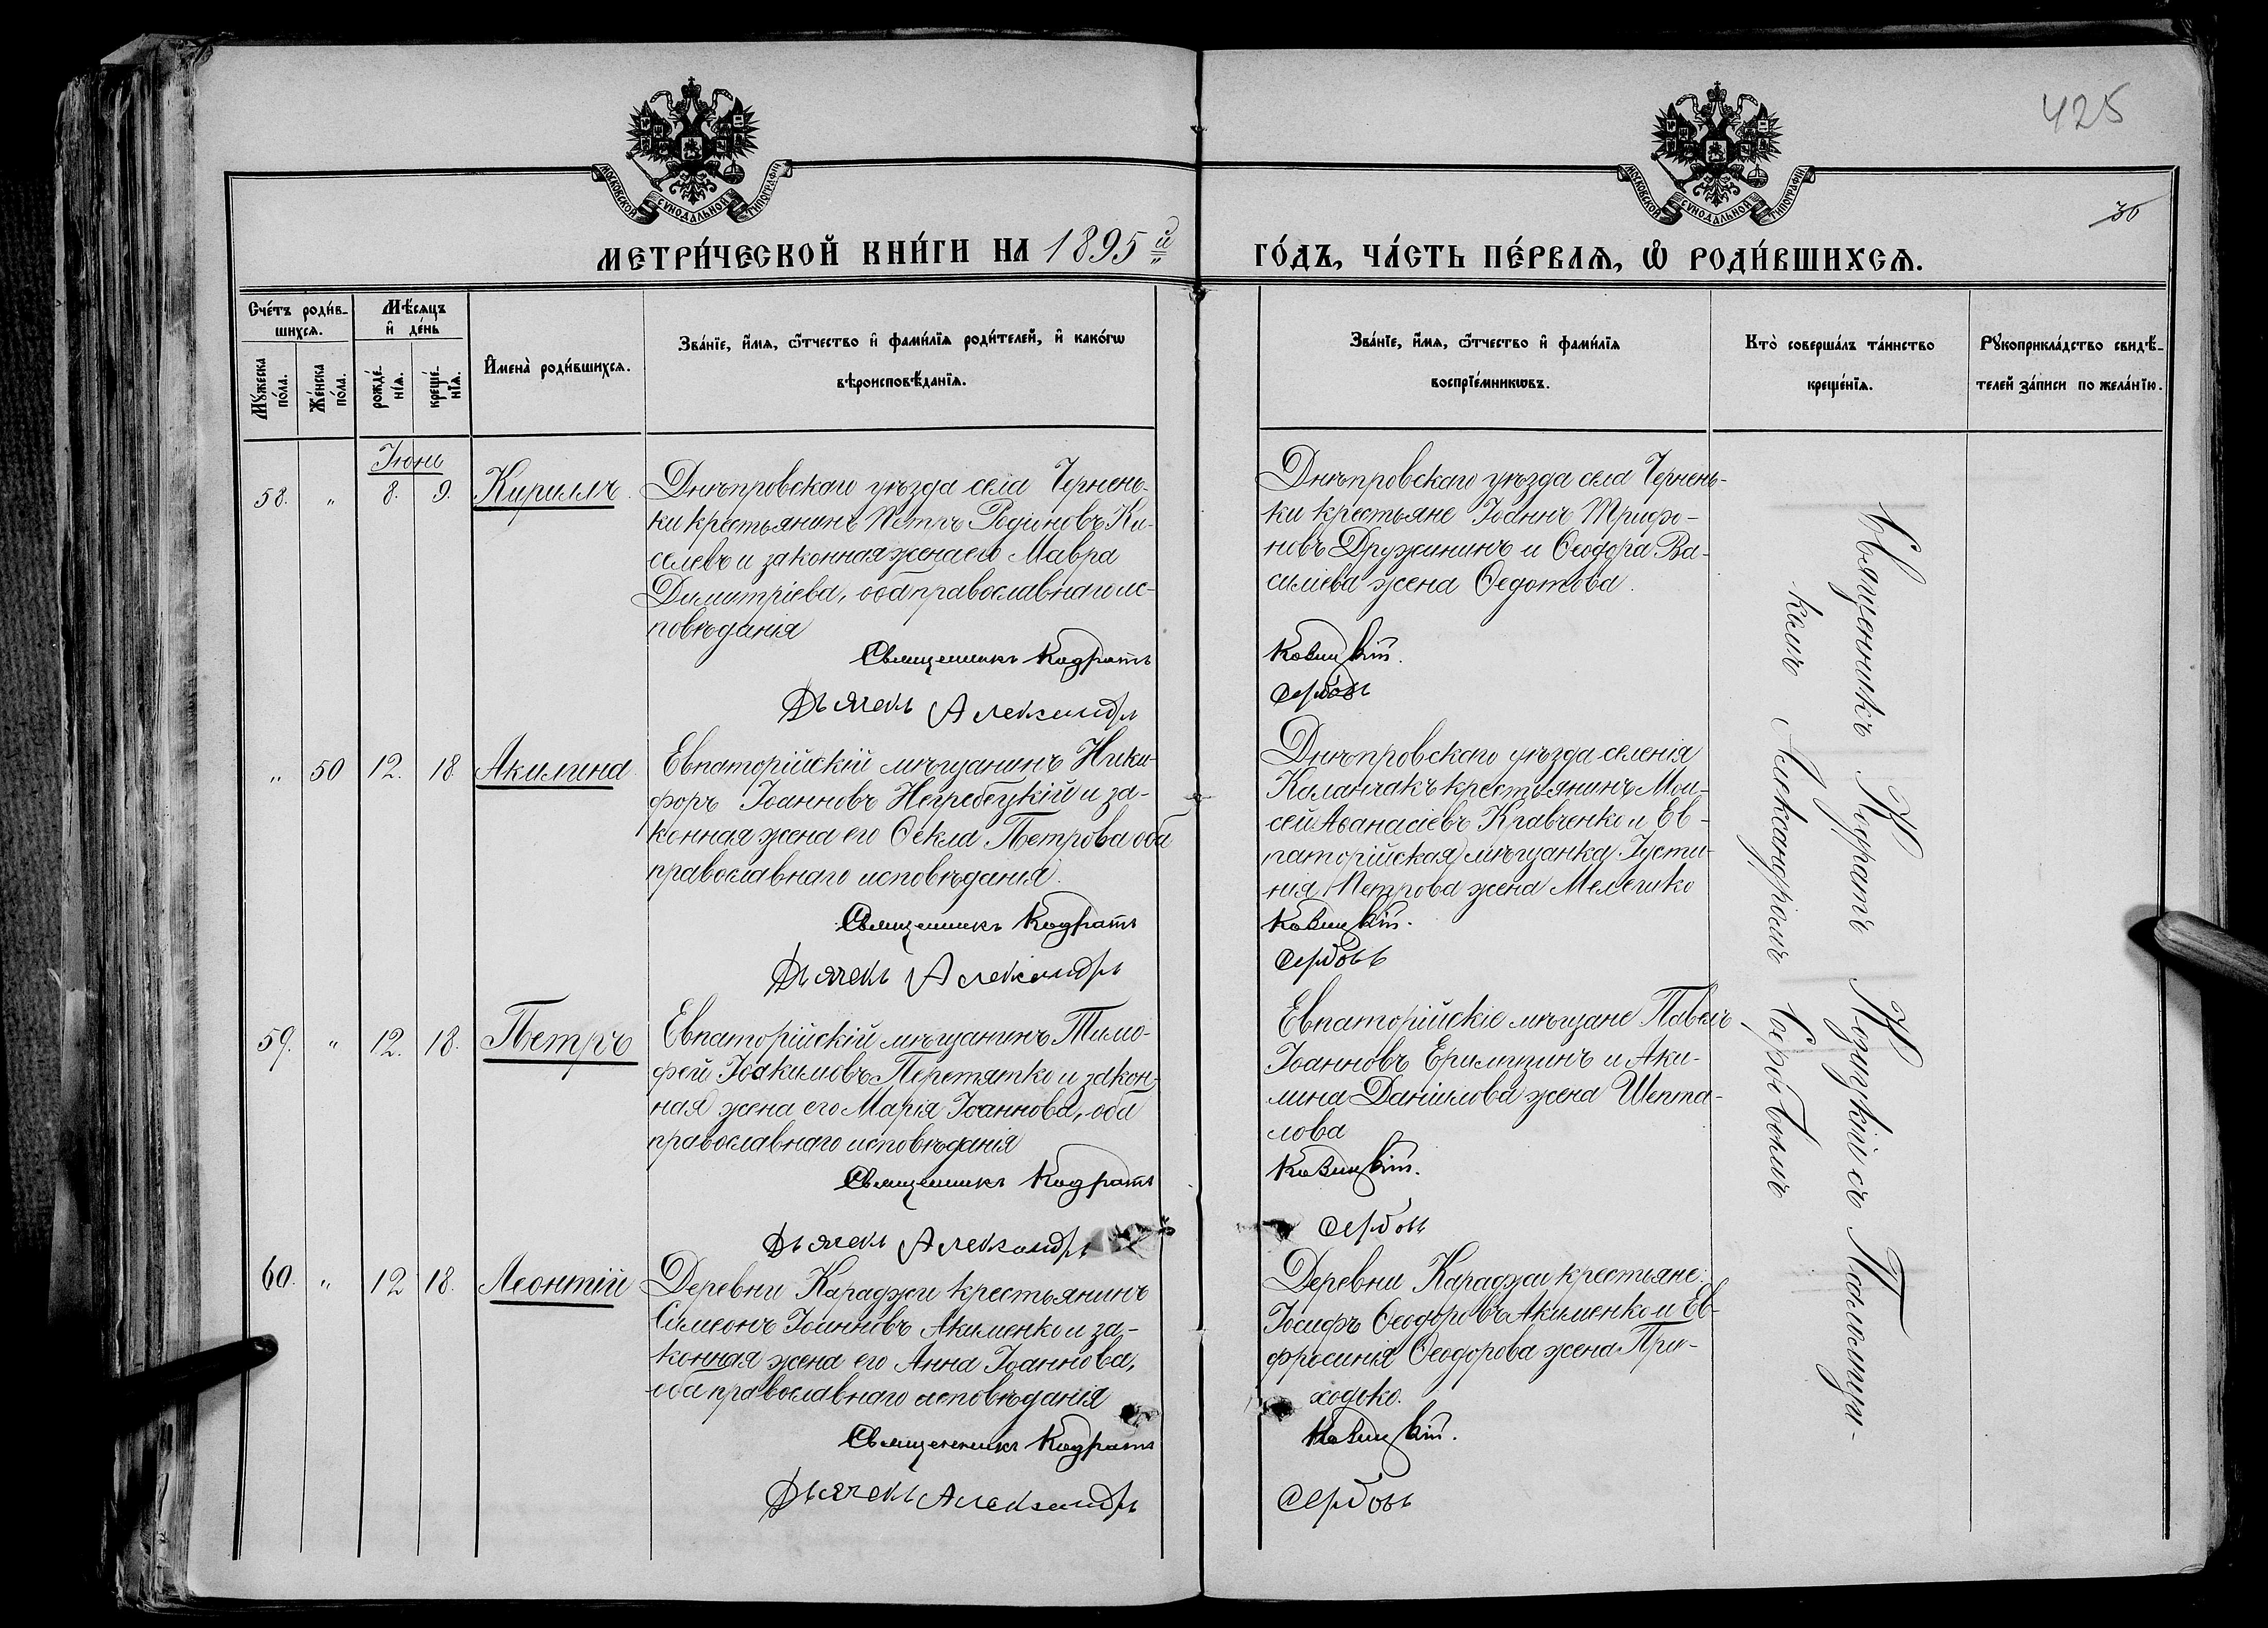 425
36
МОСКОВСКОЙ СѴНОДАЛЬНОЙ ТИПОГРАФІИ
МОСКОВСКОЙ СѴНОДАЛЬНОЙ ТИПОГРАФІИ
МЕТРИ́ЧЕСКОЙ КНИ́ГИ НА 1895й
ГО́ДЪ, ЧА́СТЬ ПЕ́РВАѦ, Ѡ҆ РОДИ́ВШИХСѦ.
Сче́тъ роди́в-
шихсѧ.
Мѣ́сяцъ
и҆ де́нь
Мꙋ́жеска по́ла.
Же́нска по́ла.
рожде́-нїѧ.
креще́-нїѧ.
И҆мена̀ роди́вшихсѧ.
Зва́нїе, и҆́мѧ, ѻ҆́тчество и҆ фами́лїѧ роди́телей, и҆ како́гѡ
вѣроисповѣ́данїѧ.
Зва́нїе, и҆́мѧ, ѻ҆́тчество и҆ фами́лїѧ
воспрїе́мникѡвъ.
Кто̀ соверша́лъ та́инство
креще́нїѧ.
Рꙋкоприкла́дство свидѣ́-
телей за́писи по жела́нїю.
Іюнь
58. „ 8. 9. Кириллъ.
Днѣпровскаго уѣзда села Чернень-
ки крестьянинъ Петръ Родіоновъ Ки-
селевъ и законная жена его Мавра
Димитріева, оба православнаго ис-
повѣданія
Священникъ Кодратъ
Дьячекъ Александръ
Днѣпровскаго уѣзда села Чернень-
ки крестьяне Іоаннъ Трифо-
новъ Дружининъ и Ѳеодора Ва-
силіева жена Ѳедотова.
Козицкій.
Сербовъ
„ 50 12. 18 Акилина.
Евпаторійскій мѣщанинъ Ники-
форъ Іоанновъ Негребецкій и за-
конная жена его Ѳекла Петрова оба
православнаго исповѣданія.
Священникъ Кодратъ
Дьячекъ Александръ
Днѣпровскаго уѣзда селенія
Каланчакъ крестьянинъ Мои-
сей Аѳанасіевъ Кравченко и Ев-
паторійская мѣщанка Іусти-
нія Петрова жена Мелешко
Козицкій.
Сербовъ
59. „ 12. 18. Петръ
Евпаторійскій мѣщанинъ Тимо-
фей Іоакимовъ Перетятко и закон-
ная жена его Марія Іоаннова, оба
православнаго исповѣданія
Священникъ Кодратъ
Дьячекъ Александръ
Евпаторійскіе мѣщане Павелъ
Іоанновъ и Аки-
лина Даніилова жена Шепта-
лова
Козицкій.
Сербовъ
60. „ 12 18. Леонтій
Деревни Караджи крестьянинъ
Симеонъ Іоанновъ Акименко и за-
конная жена его Анна Іоаннова,
оба православнаго исповѣданія
Священникъ Кодратъ
Дьячекъ Александръ
Деревни Караджи крестьяне:
Іосифъ Ѳеодоровъ Акименко и Ев-
фросинія Ѳеодорова жена При-
ходько.
Козицкій.
Сербовъ
Священникъ Кодратъ Козицкій съ Псаломщи-
комъ Александромъ Сербовымъ